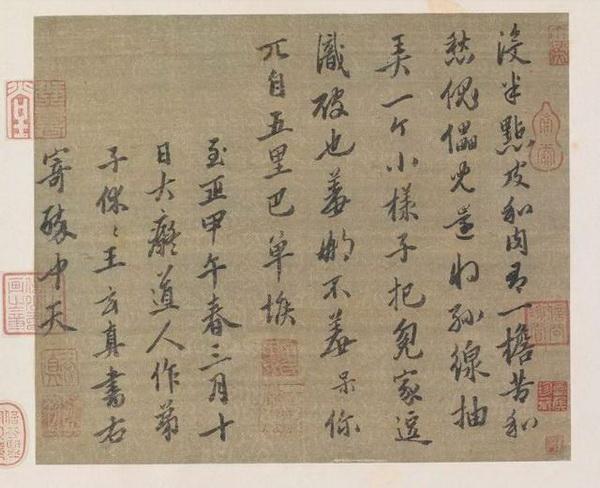 沒半點皮和肉有一檐苦和
愁傀儡兒還將絲線抽
弄一个小樣子把冤家逗
識破也羞那不羞呆你
兀自五里巴單堠
至正甲午春三月十
日大癡道人作弟
子休〻王玄真書右
寄醉中天